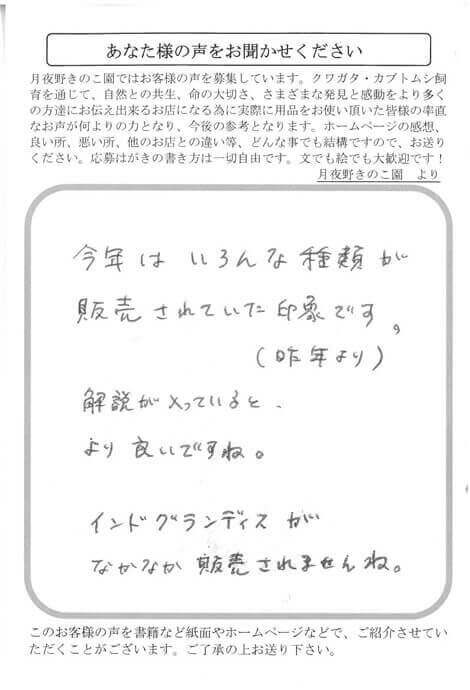 あなた様の声をお聞かせください
月夜野きのこ園ではお客様の声を募集しています。クワガタ・カブトムシ飼
育を通じて、自然との共生、命の大切さ、さまざまな発見と感動をより多く
の方達にお伝え出来るお店になる為に実際に用品をお使い頂いた皆様の率直
なお声が何よりの力となり、今後の参考となります。ホームページの感想、
良い所、悪い所、他のお店との違い等、どんな事でも結構ですので、お送り
ください。応募はがきの書き方は一切自由です。文でも絵でも大歓迎です！
月夜野きのこ園　より
今年はいろんな種類が
販売されていた印象です。
（昨年より）
解説が入っていると、
より良いですね。
インドグランディスが
なかなか販売されませんね。
このお客様の声を書籍など紙面やホームページなどで、ご紹介させてい
ただくことがございます。ご了承の上お送り下さい。